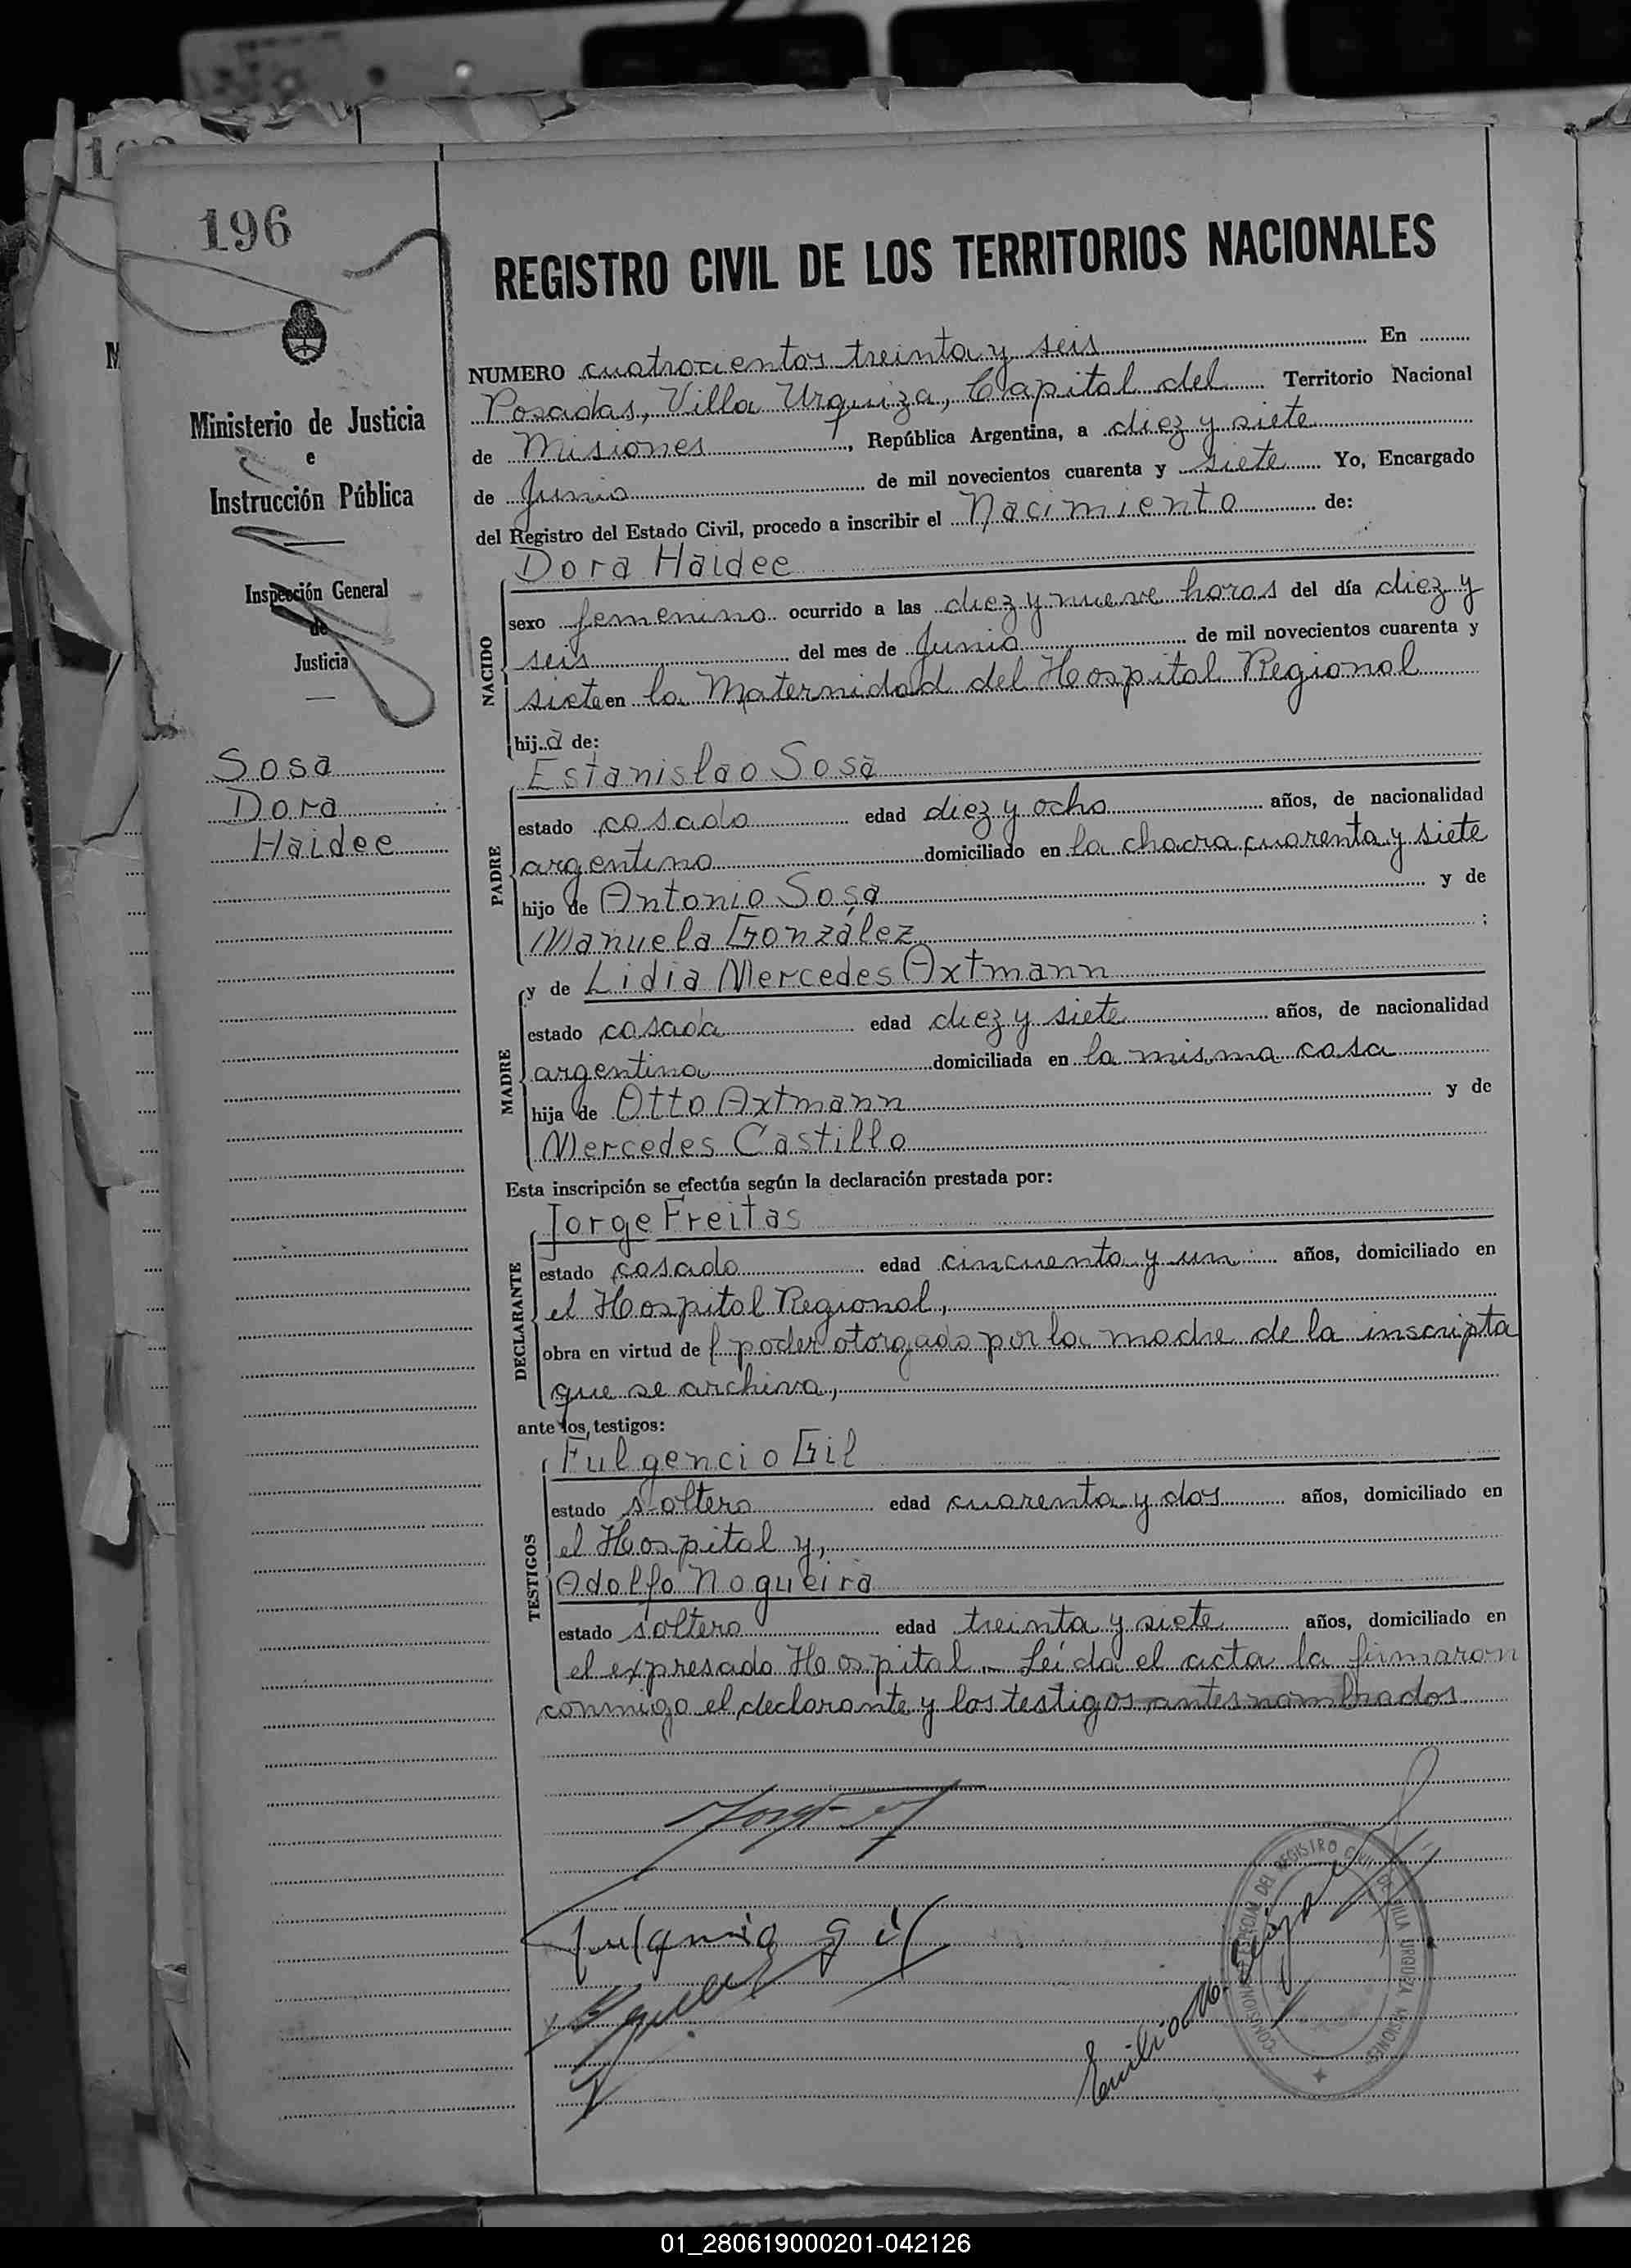 196
REGISTRO CIVIL DE LOS TERRITORIOS NACIONALES
Ministerio de Justicia
e
Instrucción Pública
Inspección General
de
Justicia
Sosa
Dora
Haidee
NUMERO cuatrocientos treinta y seis En
Posadas, Villa Urquiza, Capital del Territorio Nacional
de Misiones, República Argentina, a diez y siete
de Junio de mil novecientos cuarenta y siete Yo, Encargado
del Registro del Estado Civil, procedo a inscribir el Nacimiento de:
Dora Haidee
NACIDO
sexo femenino ocurrido a las diez y nueve horas del día diez y
seis del mes de Junio de mil novecientos cuarenta y
siete en la Maternidad del Hospital Regional
hija de:
Estanislao Sosa
PADRE
estado casado edad diez y ocho años, de nacionalidad
argentino domiciliado en la chacra cuarenta y siete
hijo de Antonio Sosa y de
Manuela González ;
y de Lidia Mercedes Axtmann
MADRE
estado casada edad diez y siete años, de nacionalidad
argentina domiciliada en la misma casa
hija de Otto Axtmann y de
Mercedes Castillo
Esta inscripción se efectúa según la declaración prestada por:
Jorge Freitas
DECLARANTE
estado casado edad cincuenta y un años, domiciliado en
el Hospital Regional,
obra en virtud del poder otorgado por la madre de la inscripta
que se archiva,
ante los testigos:
Fulgencio Gil
TESTIGOS
estado soltero edad cuarenta y dos años, domiciliado en
el Hospital y,
Adolfo Nogueira
estado soltero edad treinta y siete años, domiciliado en
el expresado Hospital. Leída el acta la firmaron
conmigo el declarante y los testigos antes nombrados
Fulgencio Gil
Emilio M.
REGISTRO CIVIL DE VILLA URQUIZA MISIONES
01_280619000201-042126